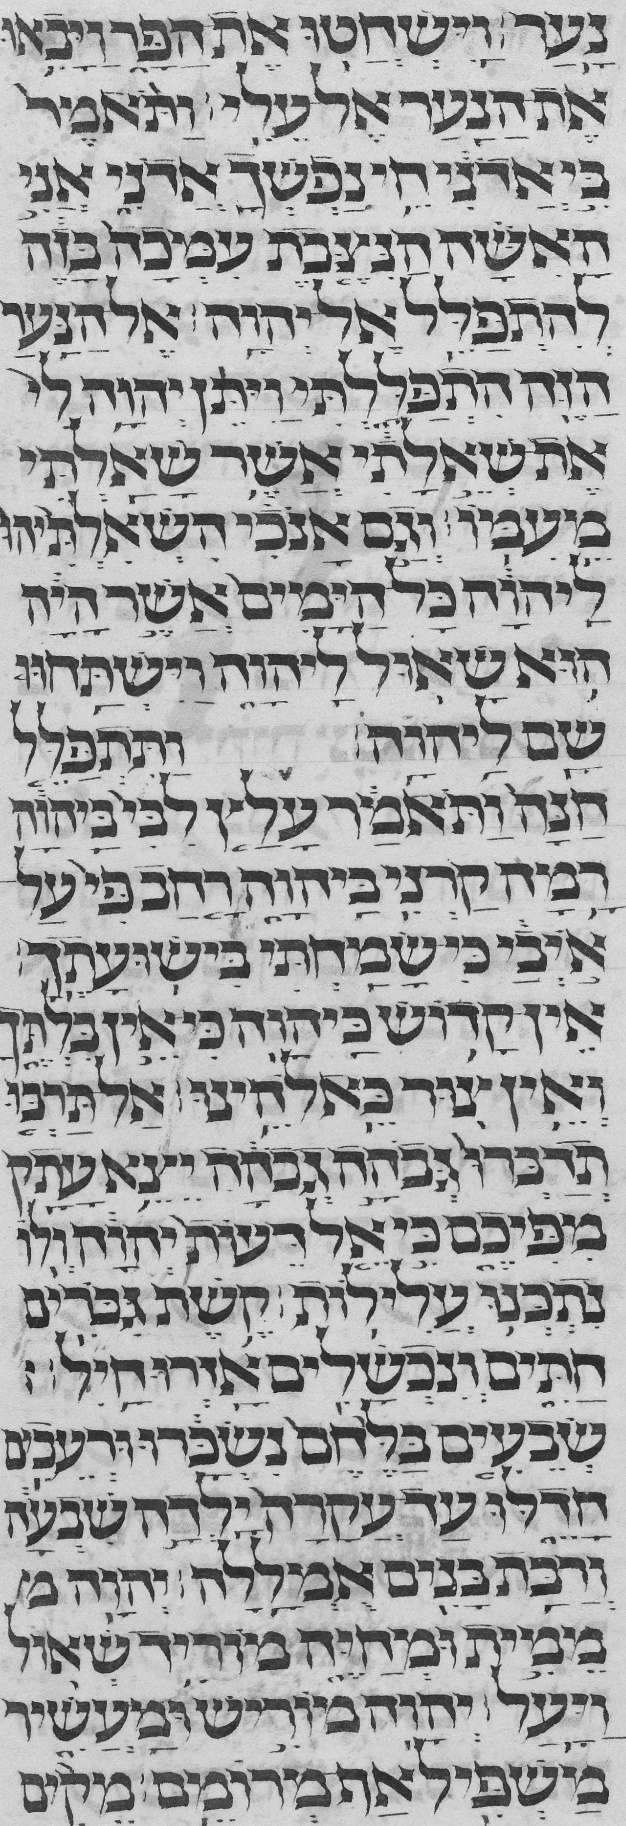 נָעַר׃ וַיִּשְׁחֲטוּ אֶת הַפָּר וַיָּבִאוּ
אֶת הַנַּעַר אֶל עֵלִי׃ וַתֹּאמֶר
בִּי אֲדֹנִי חֵי נַפְשְׁךָ אֲדֹנִי אֲנִי
הָאִשָּׁה הַנִּצֶּבֶת עִמְּכָה בָּזֶה
לְהִתְפַּלֵּל אֶל יְהוָה׃ אֶל הַנַּעַר
הַזֶּה הִתְפַּלָּלְתִּי וַיִּתֵּן יְהוָה לִי
אֶת שְׁאֵלָתִי אֲשֶׁר שָׁאַלְתִּי
מֵעִמּוֹ׃ וְגַם אָנֹכִי הִשְׁאִלְתִּיהוּ
לַיהוָה כָּל הַיָּמִים אֲשֶׁר הָיָה
הוּא שָׁאוּל לַיהוָה וַיִּשְׁתַּחוּ
שָׁם לַיהוָה׃ וַתִּתְפַּלֵּל
חַנָּה וַתֹּאמַר עָלַץ לִבִּי בַּיהוָה
רָמָה קַרְנִי בַּיהוָה רָחַב פִּי עַל
אוֹיְבַי כִּי שָׂמַחְתִּי בִּישׁוּעָתֶךָ׃
אֵין קָדוֹשׁ כַּיהוָה כִּי אֵין בִּלְתֶּךָ
וְאֵין צוּר כֵּאלֹהֵינוּ׃ אַל תַּרְבּוּ
תְדַבְּרוּ גְּבֹהָה גְבֹהָה יֵצֵא עָתָק
מִפִּיכֶם כִּי אֵל דֵּעוֹת יְהוָה וְלוֹ
נִתְכְּנוּ עֲלִילוֹת׃ קֶשֶׁת גִּבֹּרִים
חַתִּים וְנִכְשָׁלִים אָזְרוּ חָיִל׃
שְׂבֵעִים בַּלֶּחֶם נִשְׂכָּרוּ וּרְעֵבִים
חָדֵלּוּ עַד עֲקָרָה יָלְדָה שִׁבְעָה
וְרַבַּת בָּנִים אֻמְלָלָה׃ יְהוָה מ
מֵמִית וּמְחַיֶּה מוֹרִיד שְׁאוֹל
וַיָּעַל׃ יְהוָה מוֹרִישׁ וּמַעֲשִׁיר
מַשְׁפִּיל אַף מְרוֹמֵם׃ מֵקִים